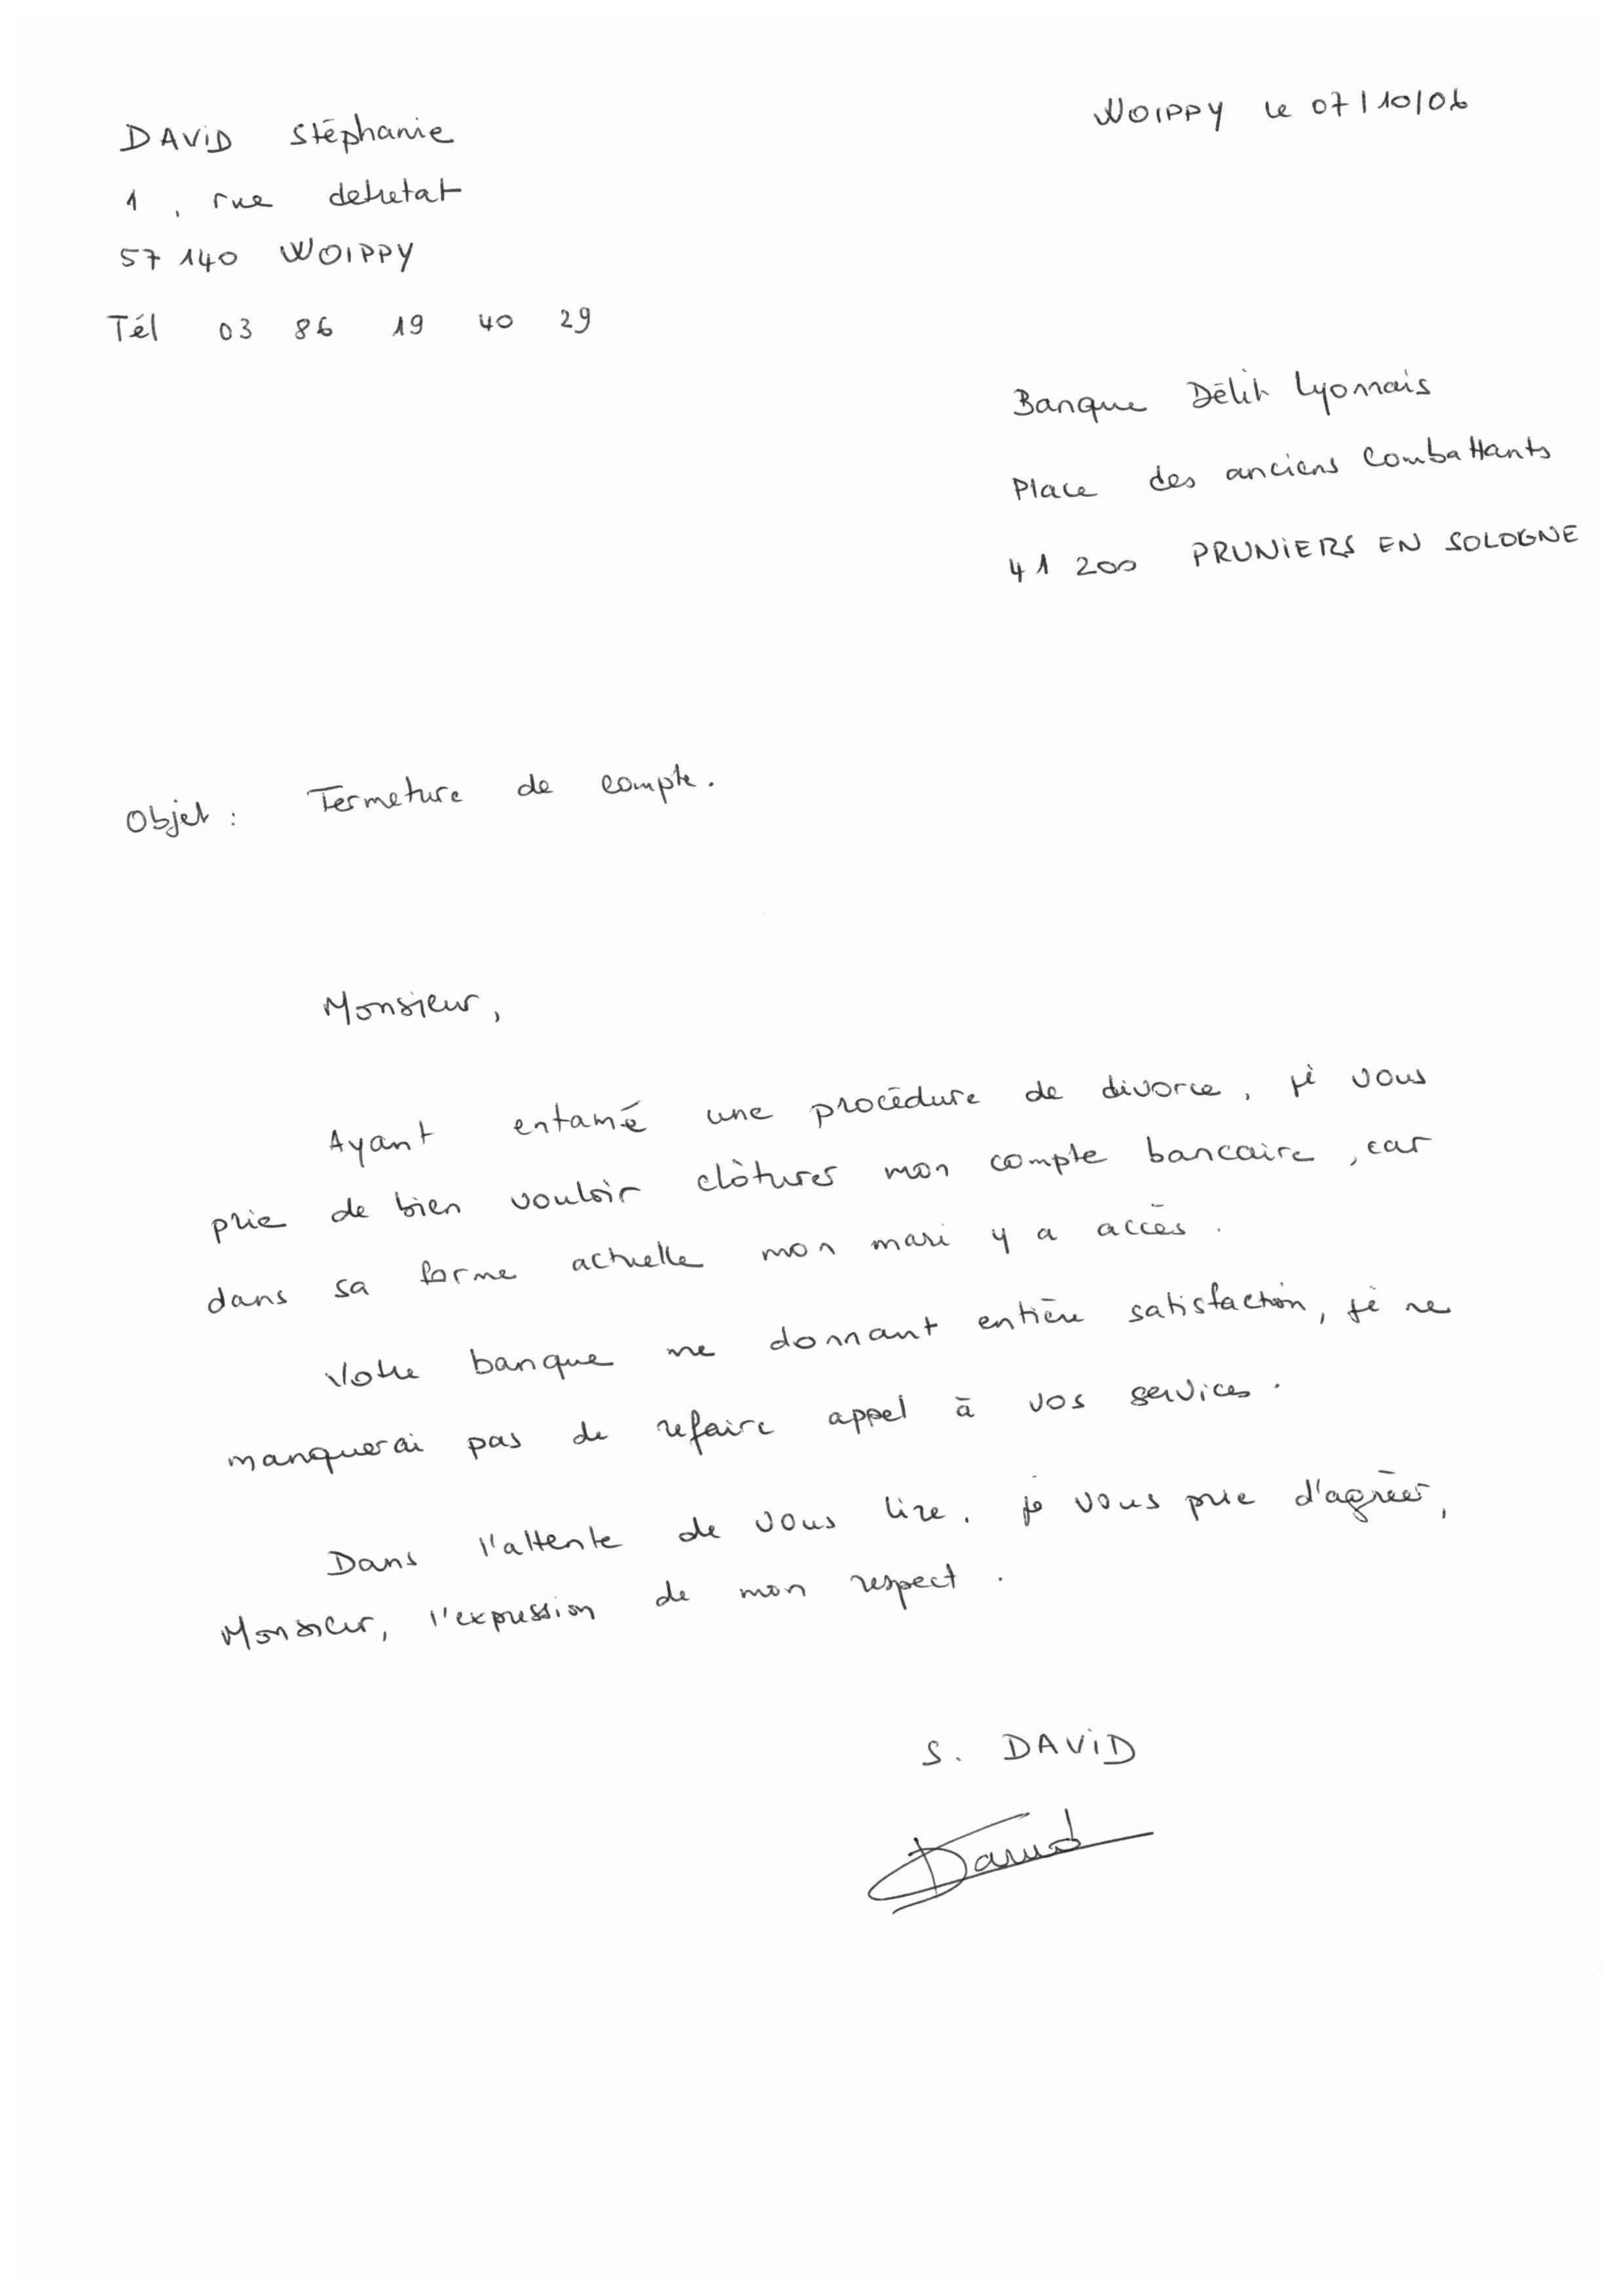 DAVID Stéphanie
1, rue detretat
57 140 WOIPPY
Tél 03 86 19 40 29
WOIPPY le 07/10/06
Banque Délit Lyonnais
Place des anciens Combattants
41 200 PRUNIERS EN SOLOGNE
Objet : Fermeture de compte.
Monsieur,
Ayant entamé une procédure de divorce, je vous
prie de bien vouloir clôturer mon compte bancaire, car
dans sa forme actuelle mon mari y a accès.
Votre banque me donnant entière satisfaction, je ne
manquerai pas de refaire appel à vos services.
Dans l'attente de vous lire, je vous prie d'agréer,
Monsieur, l'expression de mon respect.
S. DAVID
David